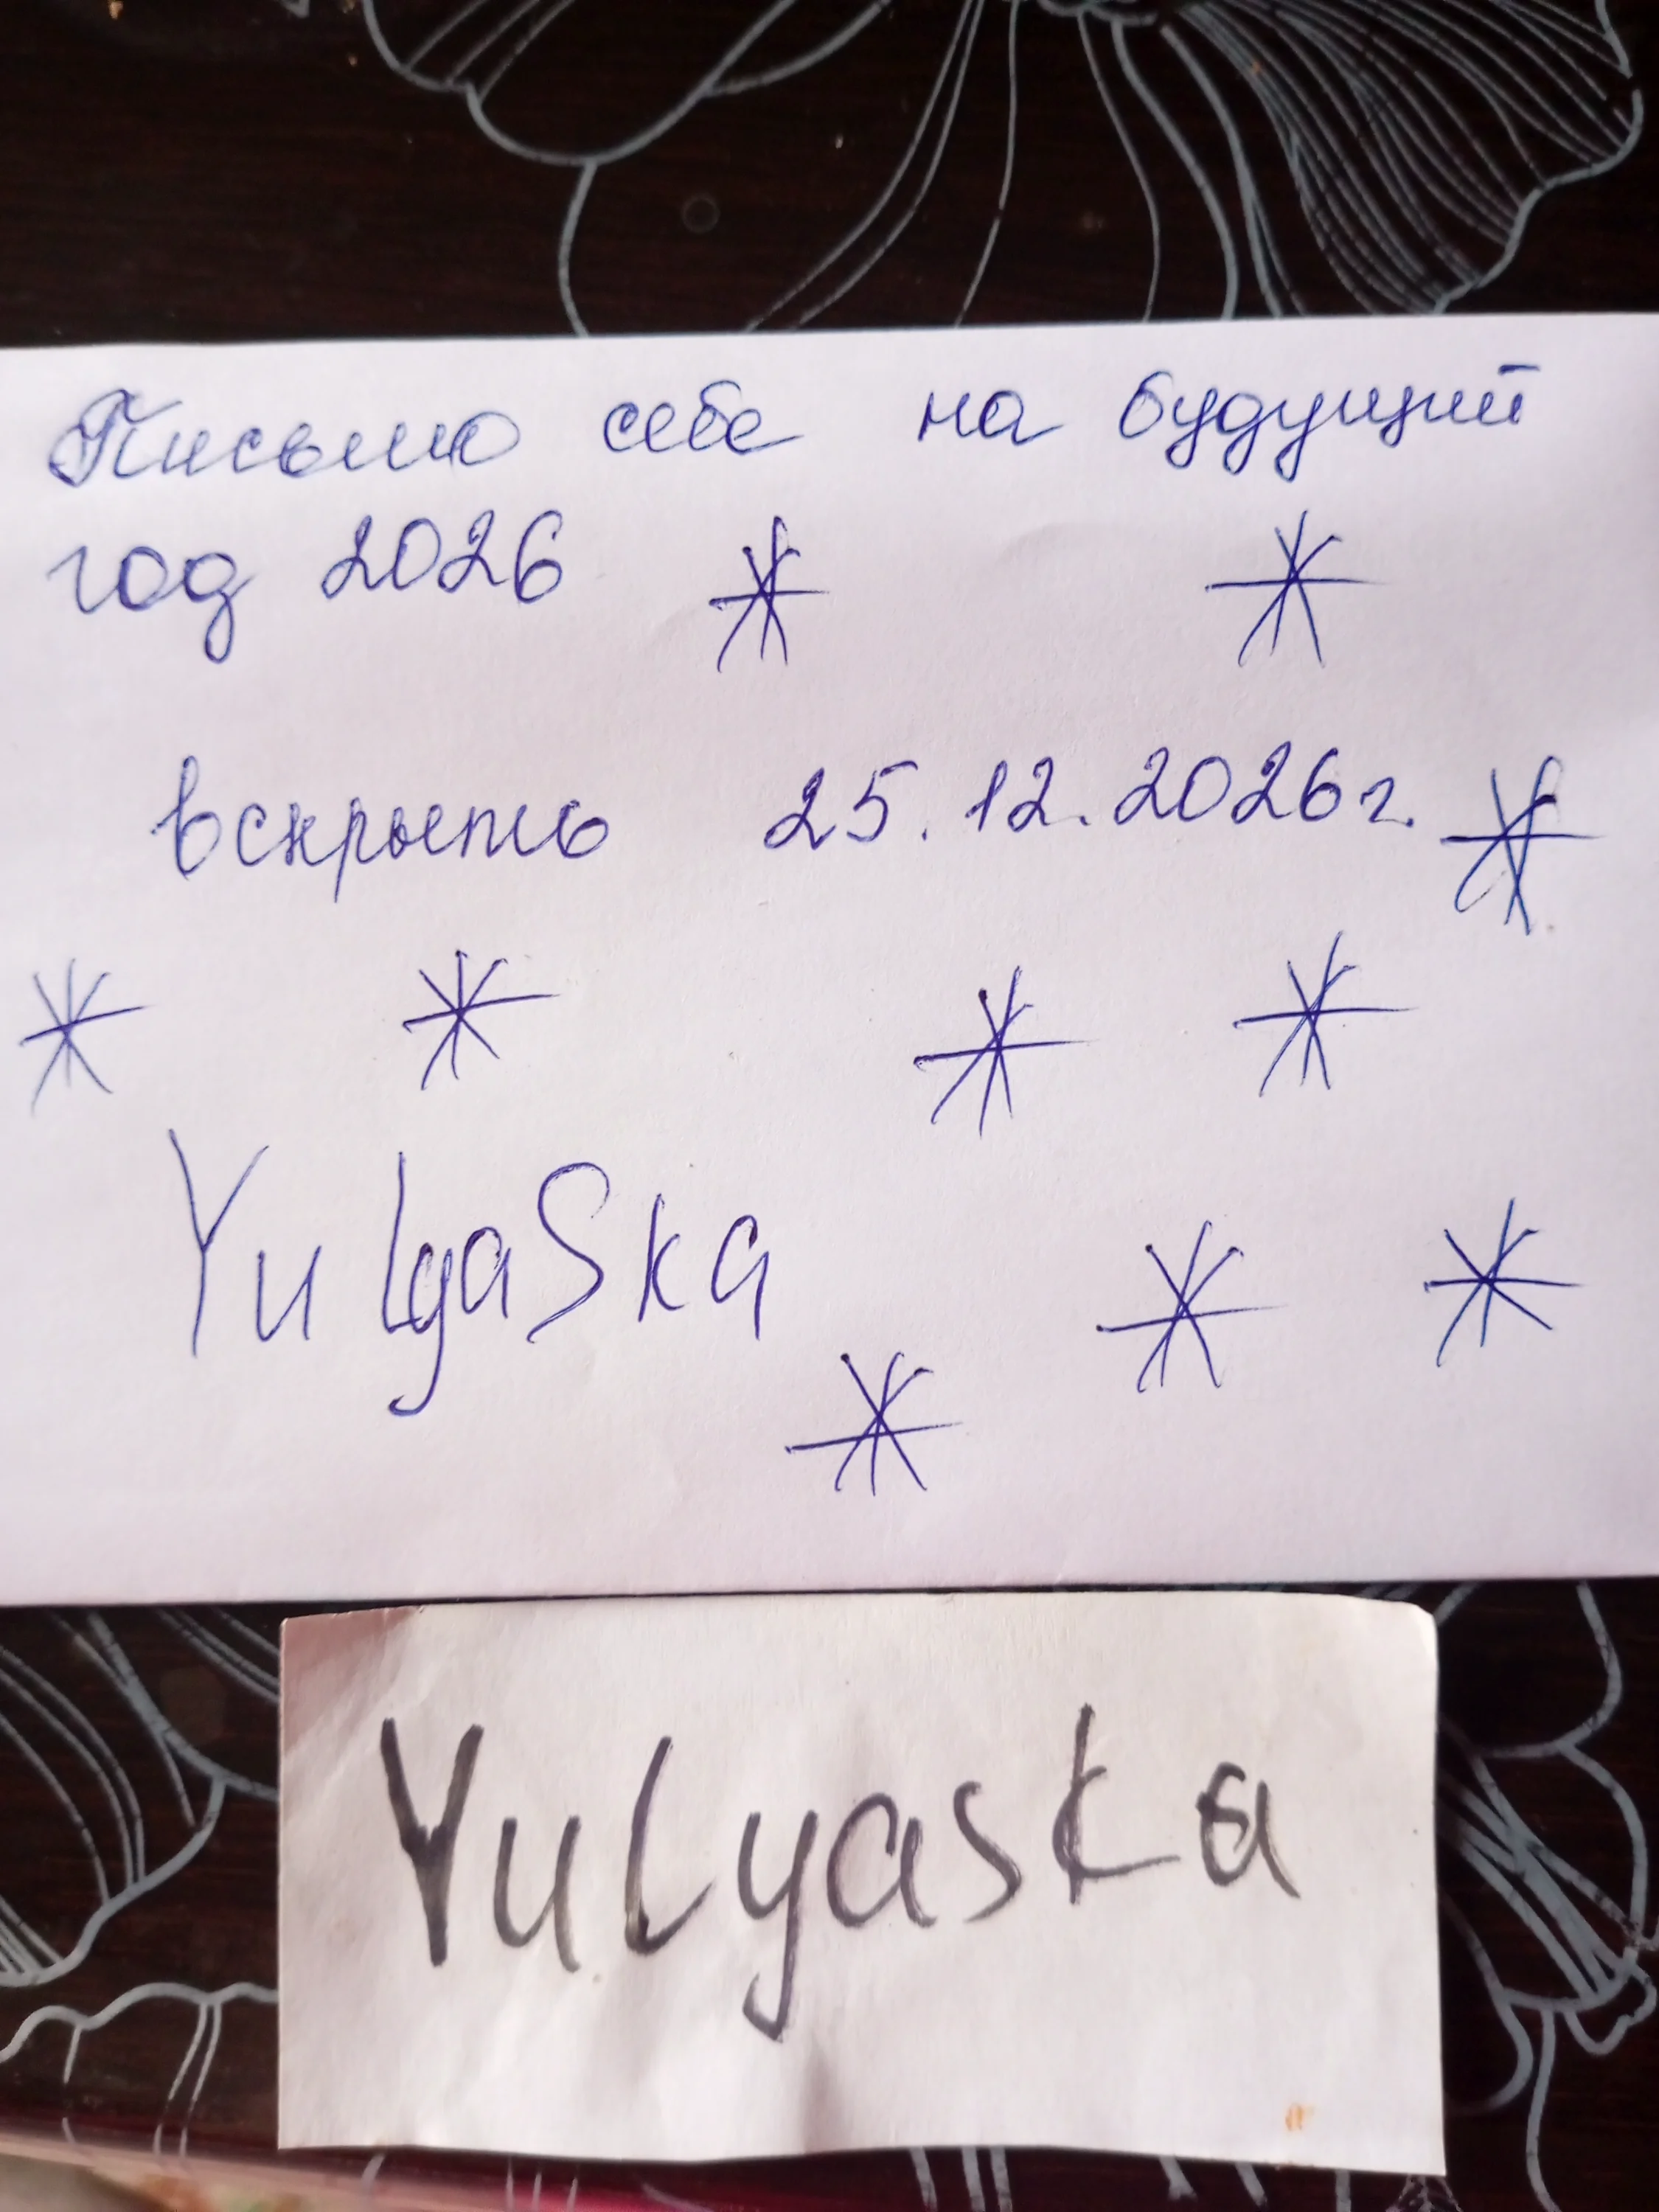 Письмо себе на будущий
год 2026
вскрыть 25.12.2026г.
YulyaSka
Yulyaska